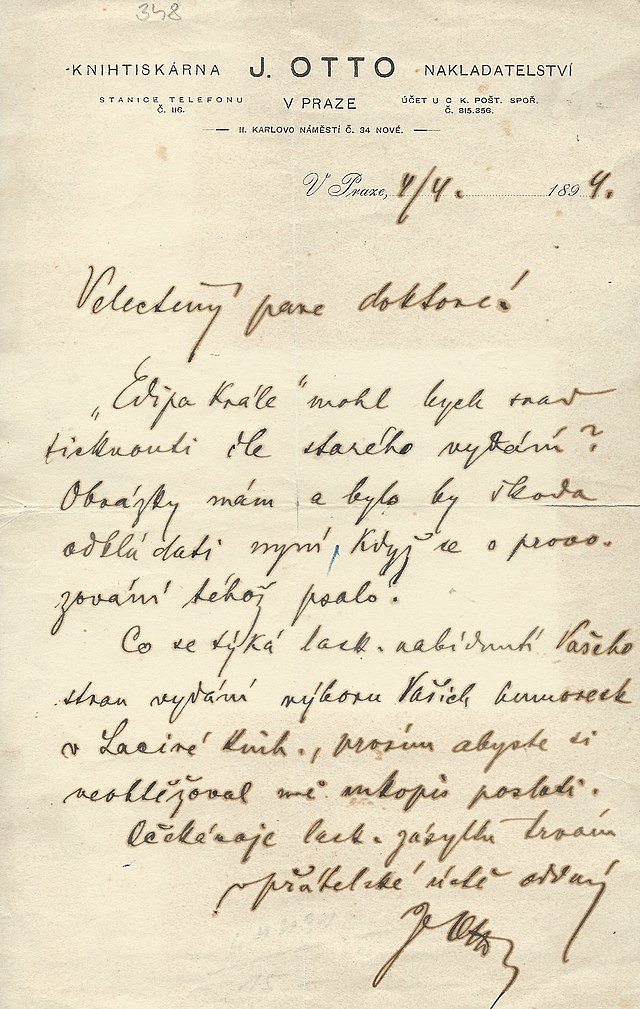 348
KNIHTISKÁRNA J. OTTO NAKLADATELSTVÍ
STANICE TELEFONU Č. 116. V PRAZE ÚČET U C. K. POŠT. SPOŘ. Č. 815.356.
II. KARLOVO NÁMĚSTÍ Č. 34 NOVÉ.
V Praze, 4/4. 1894.
Velectěný pane doktore!
„Edipa Krále“ mohl bych snad
tisknouti dle starého vydání?
Obrázky mám a bylo by škoda
odkládati nyní, když se o provo-
zování téhož psalo.
Co se týká lask. nabídnutí Vašeho
stran vydání výboru Vašich humoresk
v Laciné knih., prosím abyste si
neobtěžoval mě rukopis poslati.
Očekávaje lask. zásylku trvám
v přátelské úctě oddaný
J Otto